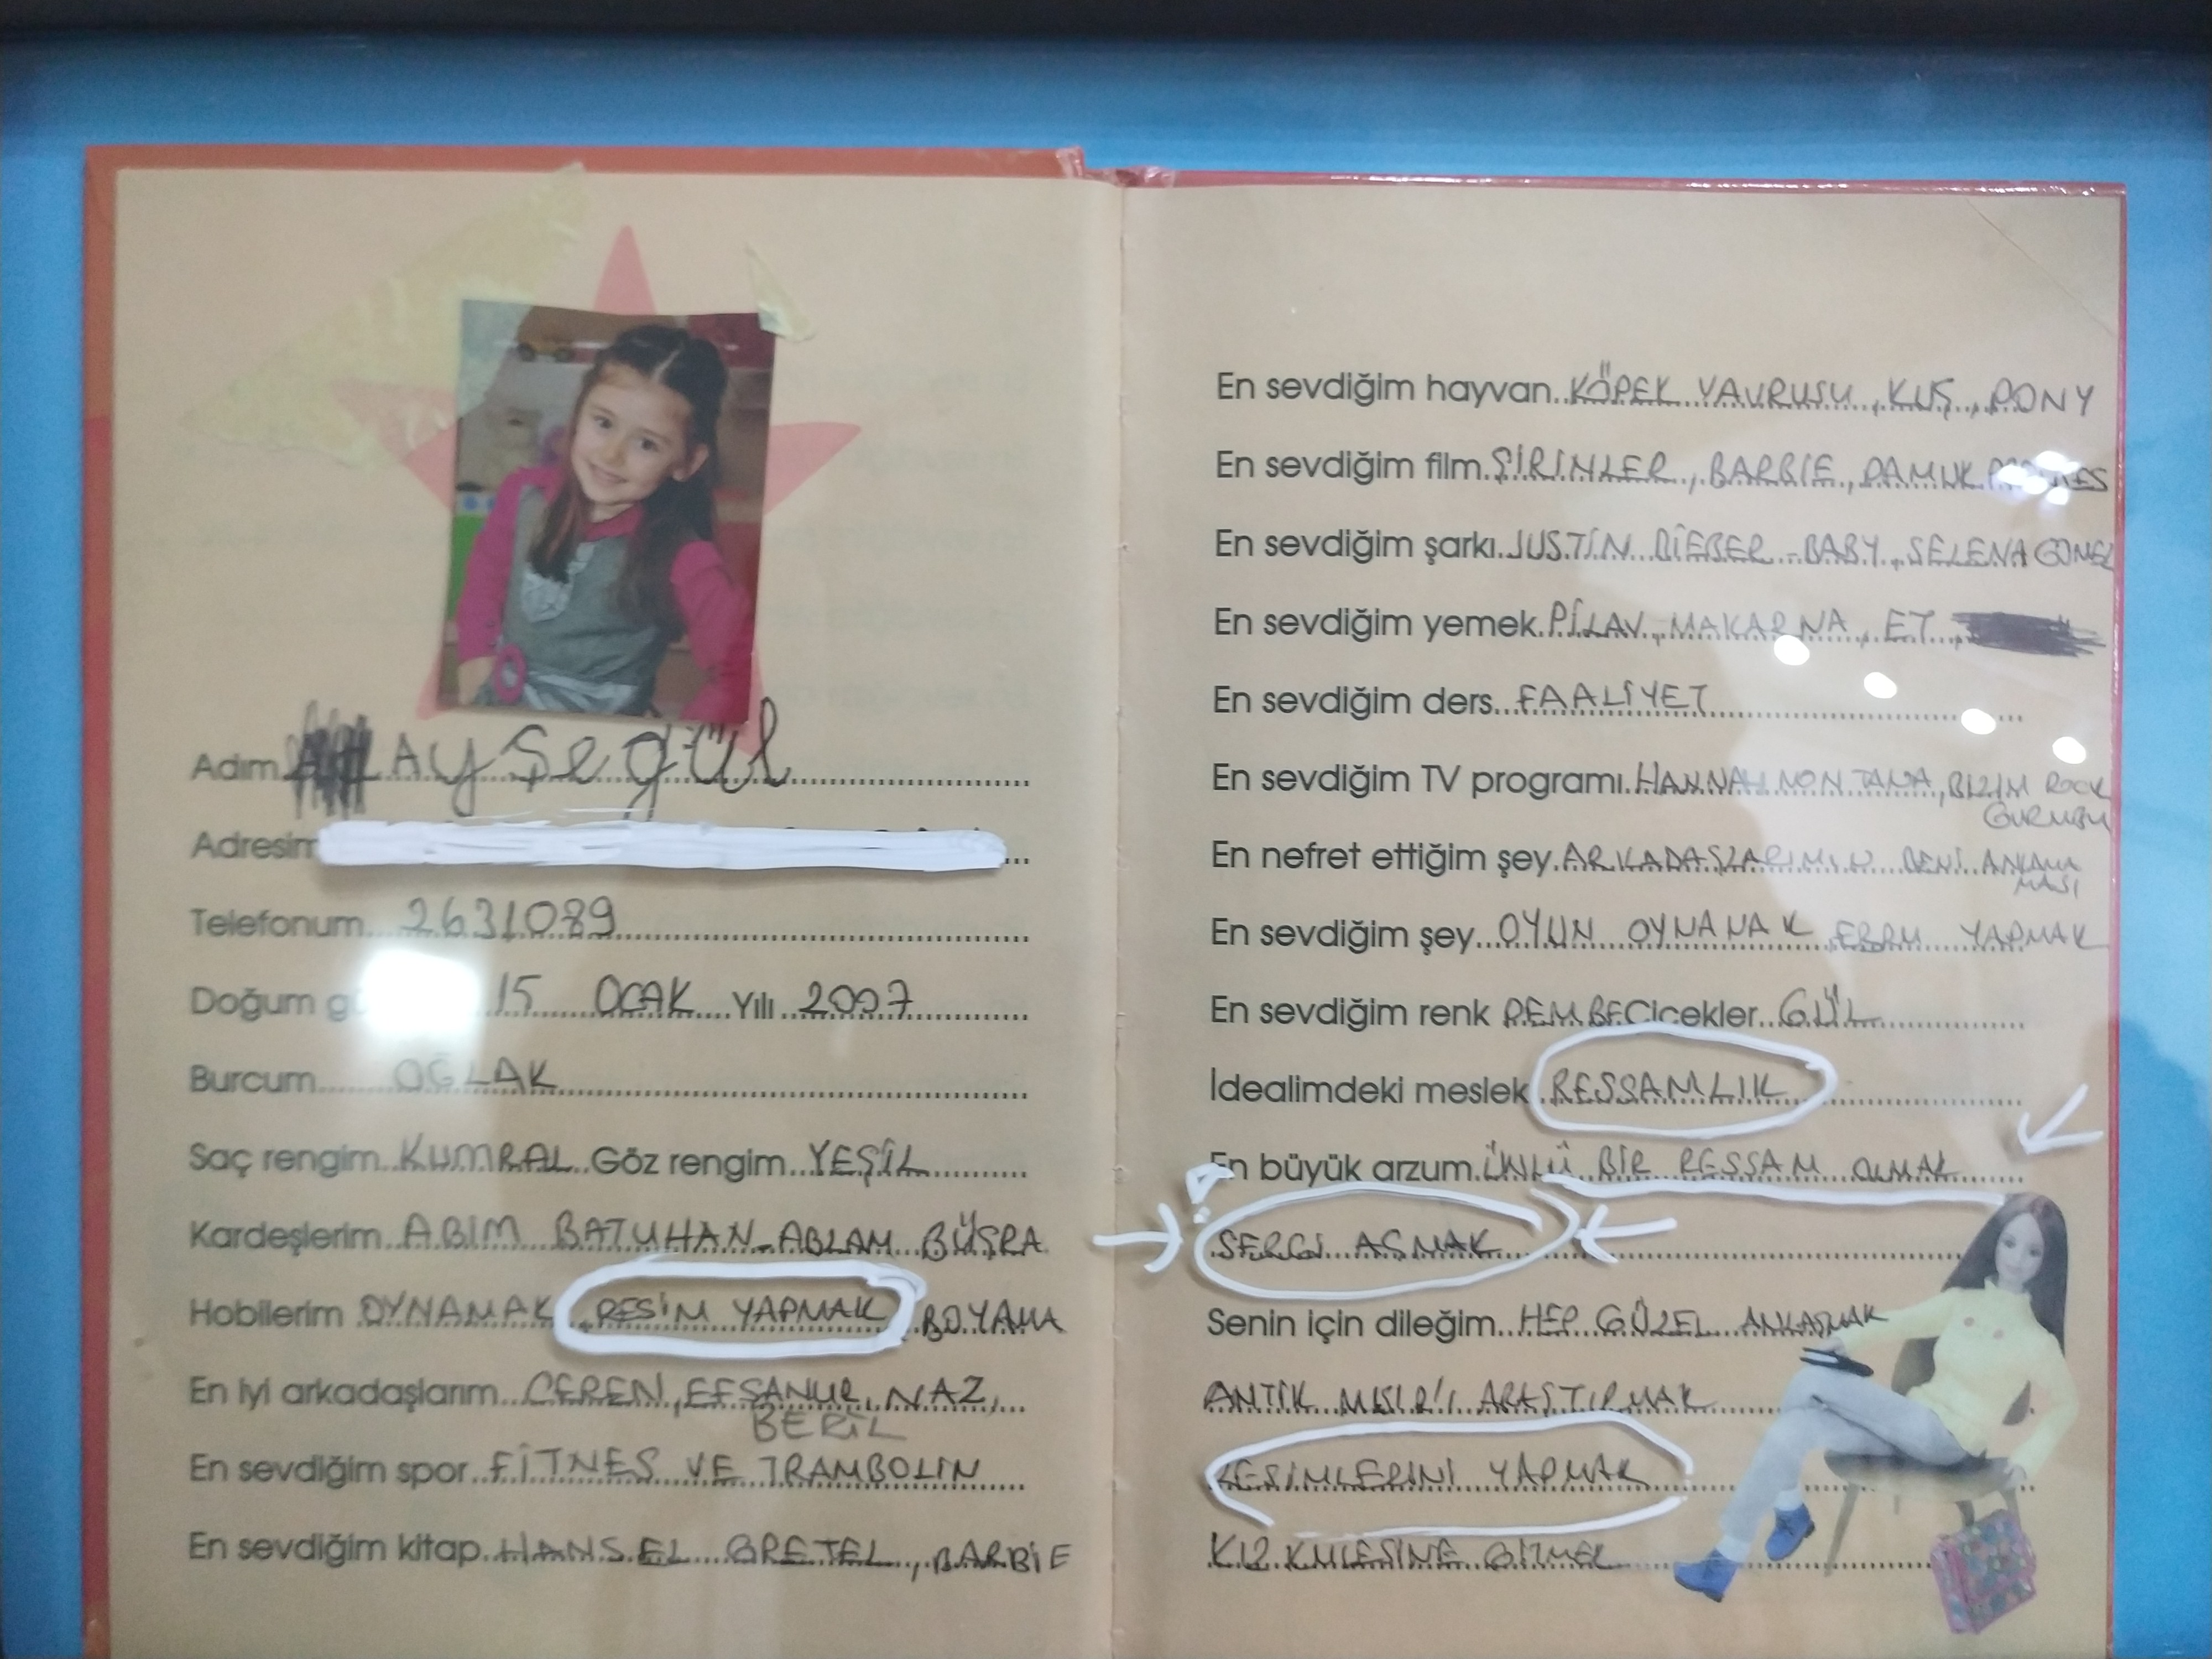 Adım AyŞegül
Adresim
Telefonum 2631089
Doğum 15 OCAK Yılı 2007
Burcum OĞLAK
Saç rengim KUMRAL Göz rengim YEŞİL
Kardeşlerim ABİM BATUHAN_ABLAM BÜŞRA
Hobilerim OYNAMAK, RESİM YAPMAK, BOYAMA
En iyi arkadaşlarım CEREN, EFSANUR, NAZ,
BERİL
En sevdiğim spor FİTNES VE TRAMBOLIN
En sevdiğim kitap HANSEL GRETEL, BARBİE
En sevdiğim hayvan KÖPEK YAVRUSU, KUŞ, PONY
En sevdiğim film ŞİRİNLER, BARBIE, PAMUK PRENSES
En sevdiğim şarkı JUSTİN BİEBER - BABY, SELENA GOMEZ
En sevdiğim yemek PİLAV, MAKARNA, ET,
En sevdiğim ders FAALİYET
En sevdiğim TV programı HANNAH MONTANA, BIZIM ROCK
GURUBU
En nefret ettiğim şey ARKADAŞLARIMIN BENİ ANLAMA
MASI
En sevdiğim şey OYUN OYNAMAK, EBRU YAPMAK
En sevdiğim renk PEMBE Çiçekler GÜL
İdealimdeki meslek RESSAMLIK
En büyük arzum ÜNLÜ BİR RESSAM OLMAK
SERGİ AÇMAK
Senin için dileğim HEP GÜZEL ANLAŞMAK
ANTİK MISIR'I ARAŞTIRMAK
RESİMLERİNİ YAPMAK
KIZ KULESİNE GİTMEK